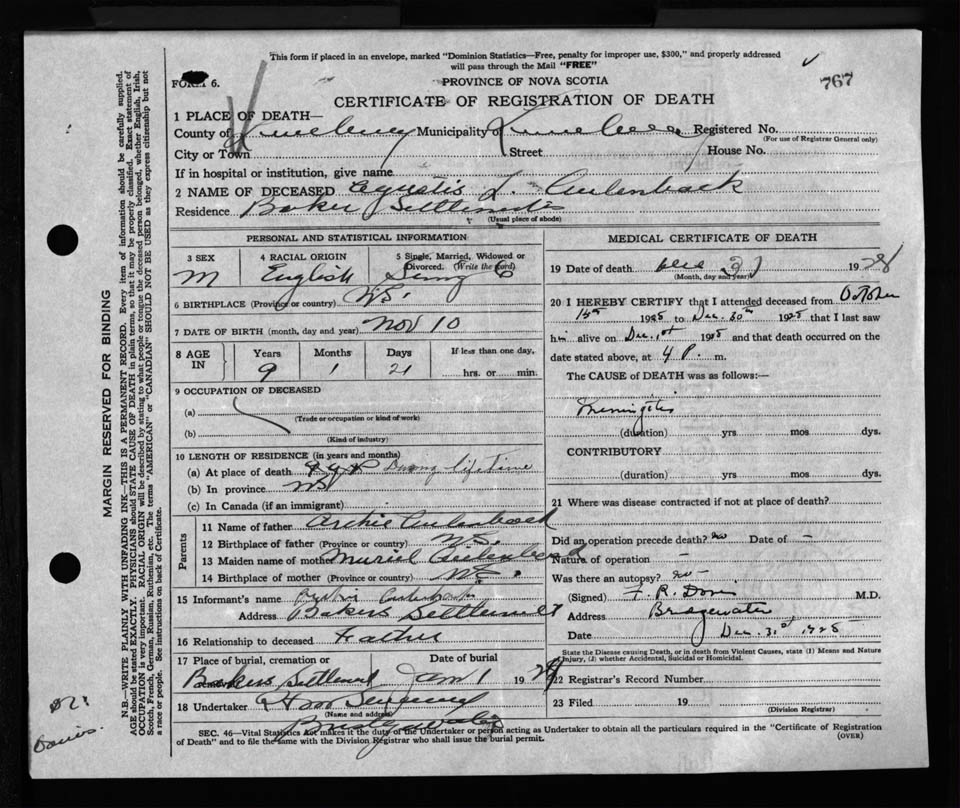 This form if placed in an envelope, marked "Dominion Statistics—Free, penalty for improper use, $300," and properly addressed
will pass through the Mail "FREE"
767
6.
PROVINCE OF NOVA SCOTIA
CERTIFICATE OF REGISTRATION OF DEATH
1 PLACE OF DEATH—
County of Lunenburg Municipality of Lunenburg Registered No.
(For use of Registrar General only)
City or Town Street House No.
If in hospital or institution, give name
2 NAME OF DECEASED L. Aulenback
Residence Baker Settlement
(Usual place of abode)
PERSONAL AND STATISTICAL INFORMATION
3 SEX 4 RACIAL ORIGIN 5 Single, Married, Widowed or Divorced. (Write the word)
M English Single
6 BIRTHPLACE (Province or country) N.S.
7 DATE OF BIRTH (month, day and year) Nov 10
8 AGE IN Years Months Days If less than one day,
9 1 21 hrs. or min.
9 OCCUPATION OF DECEASED
(a)
(Trade or occupation or kind of work)
(b)
(Kind of industry)
10 LENGTH OF RESIDENCE (in years and months)
(a) At place of death During life time
(b) In province NS
(c) In Canada (if an immigrant)
Parents
11 Name of father Archie Aulenback
12 Birthplace of father (Province or country) N.S.
13 Maiden name of mother Muriel Aulenback
14 Birthplace of mother (Province or country) N.S.
15 Informant's name Aulenback
Address Bakers Settlement
16 Relationship to deceased Father
17 Place of burial, cremation or Date of burial
Bakers Settlement Jan 1 19
18 Undertaker
(Name and address)
Bridgewater
MEDICAL CERTIFICATE OF DEATH
19 Date of death Dec 31 1928
(Month, day and year)
20 I HEREBY CERTIFY that I attended deceased from October
to Dec. 30th that I last saw
him alive on Dec. and that death occurred on the
date stated above, at 4 P. m.
The CAUSE of DEATH was as follows:—
Meningitis
(duration) yrs mos dys.
CONTRIBUTORY
(duration) yrs. mos. dys.
21 Where was disease contracted if not at place of death?
Did an operation precede death? no Date of –
Nature of operation –
Was there an autopsy? no –
(Signed) F. R. Davis M.D.
Address Bridgewater
Date Dec. 31st
State the Disease causing Death, or in death from Violent Causes, state (1) Means and Nature
of Injury, (2) whether Accidental, Suicidal or Homicidal.
22 Registrar's Record Number
23 Filed 19
(Division Registrar)
SEC. 46—Vital Statistics Act makes it the duty of the Undertaker or person acting as Undertaker to obtain all the particulars required in the "Certificate of Registration
of Death" and to file the same with the Division Registrar who shall issue the burial permit. (OVER)
MARGIN RESERVED FOR BINDING
N.B.—WRITE PLAINLY WITH UNFADING INK—THIS IS A PERMANENT RECORD. Every item of information should be carefully supplied.
AGE should be stated EXACTLY. PHYSICIANS should STATE CAUSE OF DEATH in plain terms, so that it may be properly classified. Exact statement of
OCCUPATION is very important. RACIAL ORIGIN will be described by stating to what people or tongue the deceased person belonged, whether English, Irish,
Scotch, French, German, Russian, Ruthenian, etc. The terms "AMERICAN" or "CANADIAN" SHOULD NOT BE USED as they express citizenship but not
a race or people. See instructions on back of Certificate.
Davis.